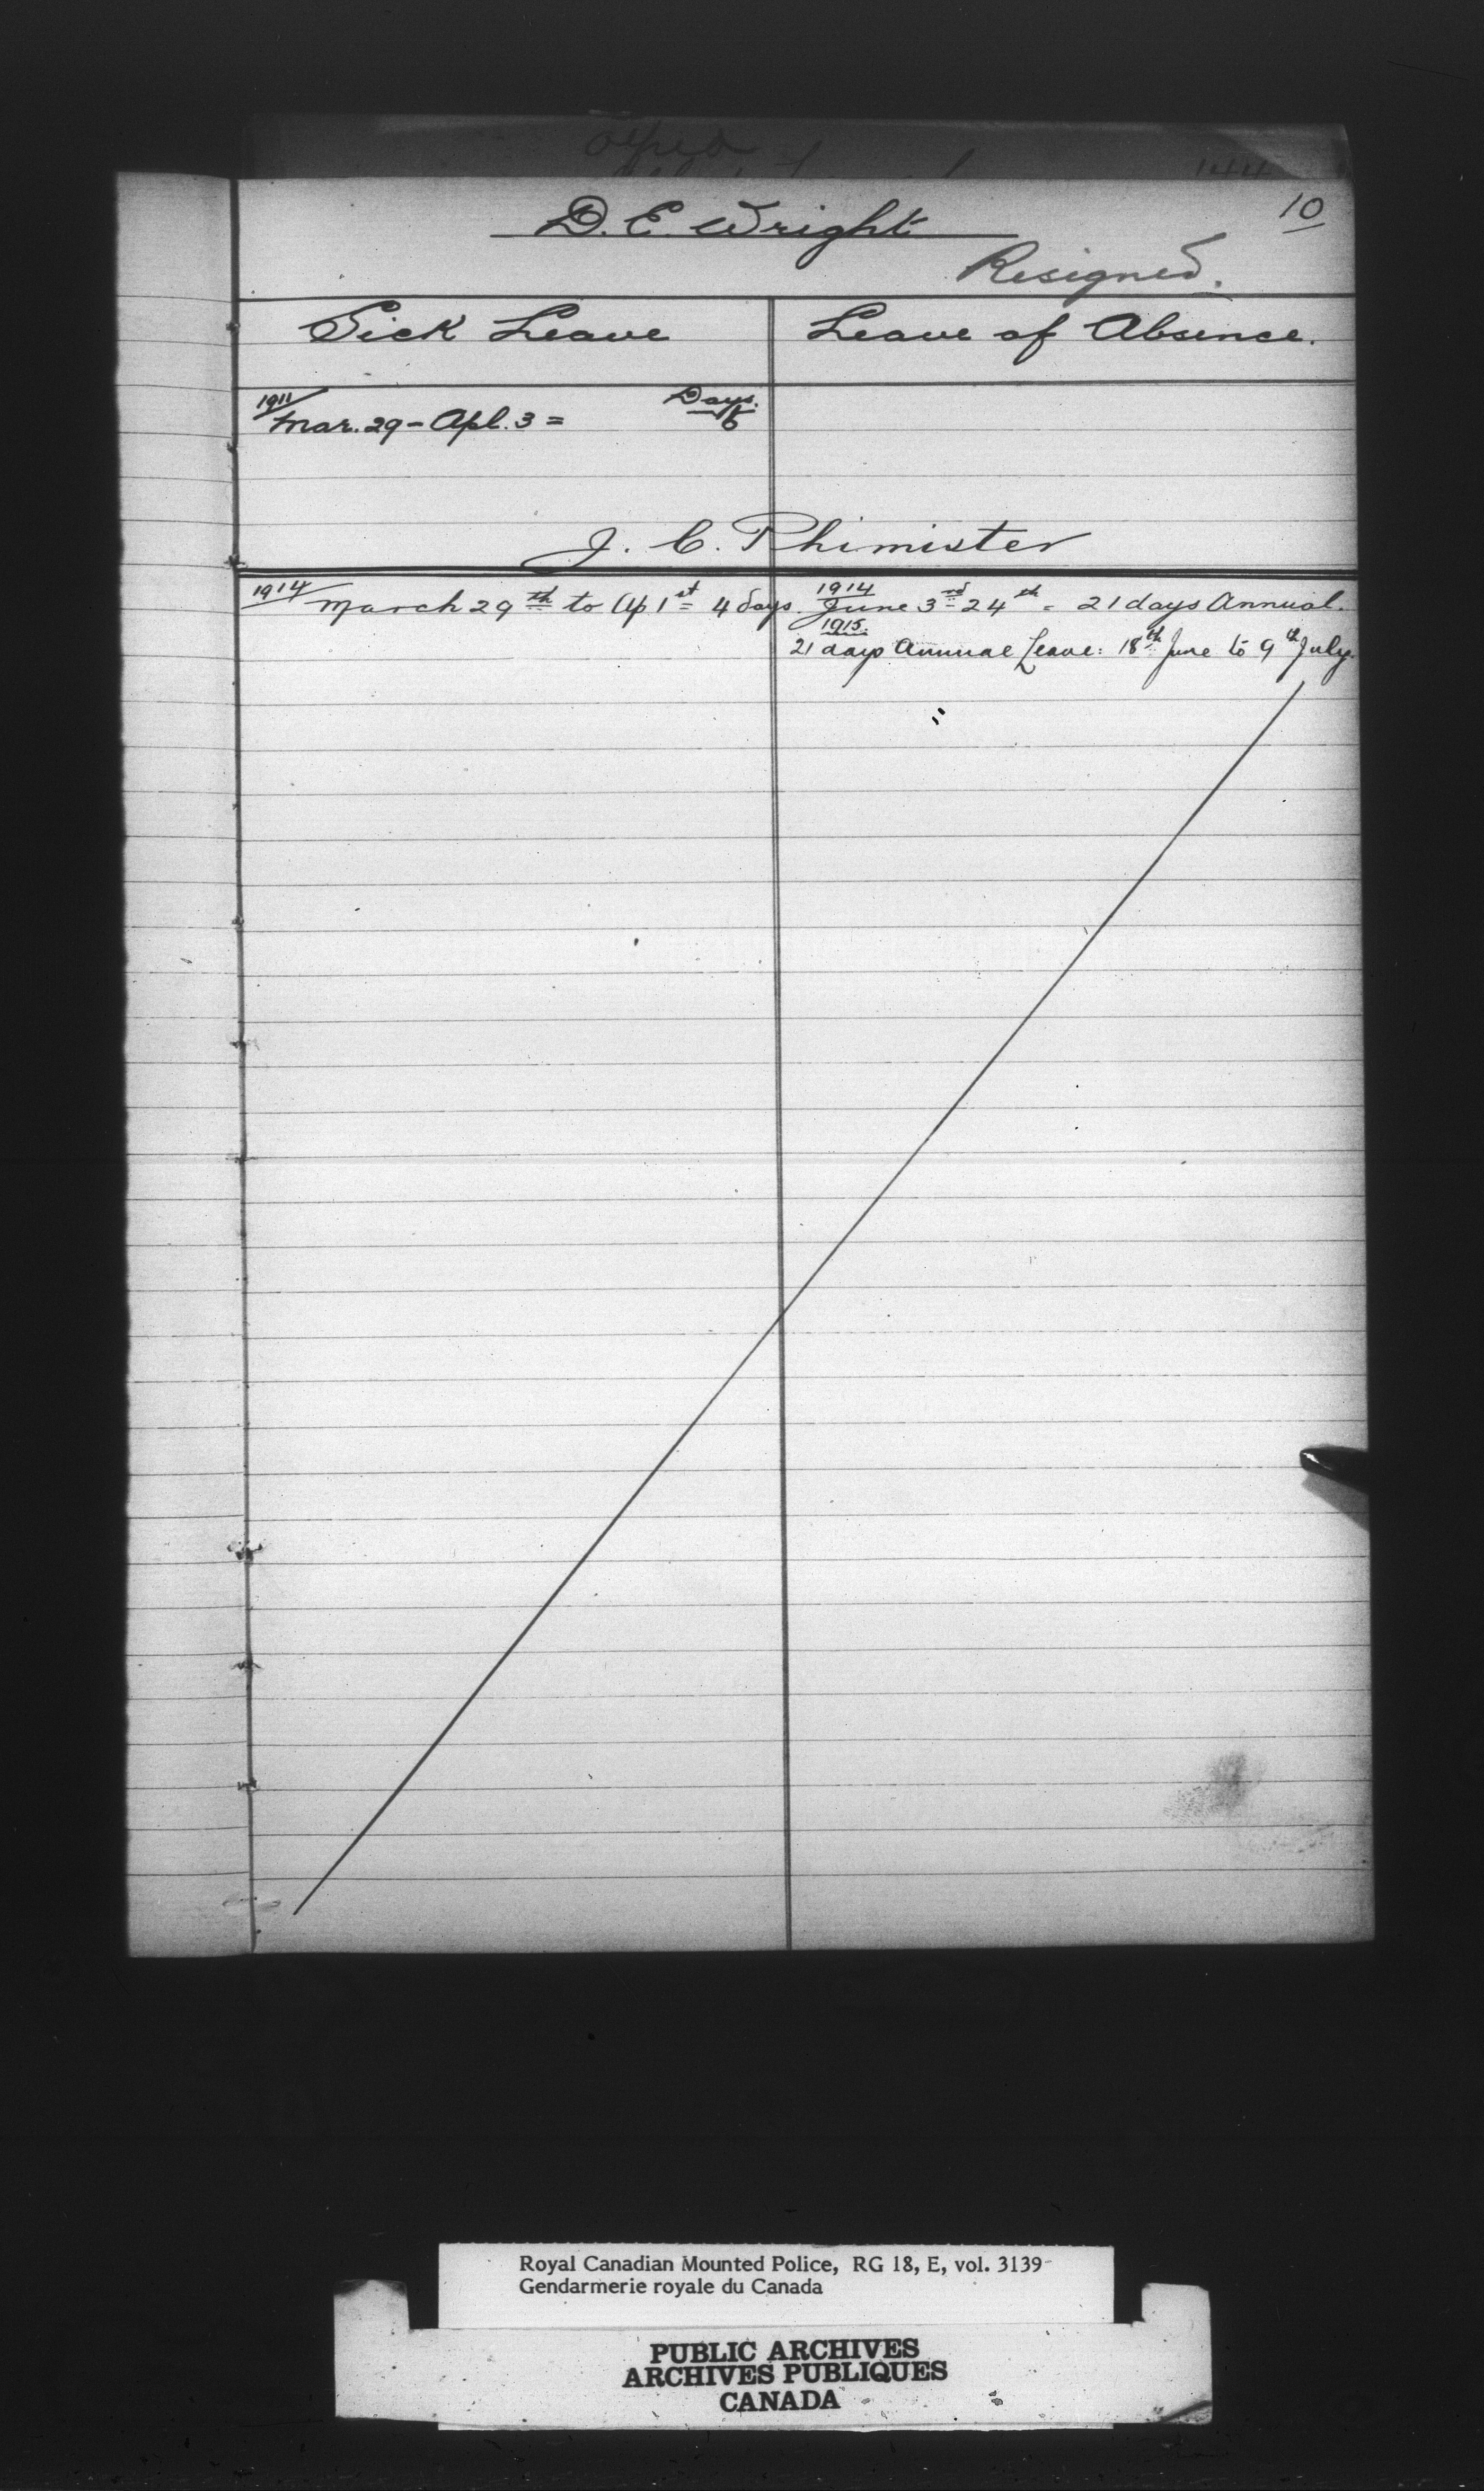 10
D. E. Wright
Resigned.
Sick Leave
Leave of Absence.
1911
Days.
Mar. 29 - Apl. 3 = 6
J. C. Phimister
1914 March 29th to Ap 1st = 4 days.
1914
June 3rd - 24th = 21 days Annual.
1915.
21 days Annual Leave: 18th June to 9th July.
Royal Canadian Mounted Police, RG 18, E, vol. 3139
Gendarmerie royale du Canada
PUBLIC ARCHIVES
ARCHIVES PUBLIQUES
CANADA